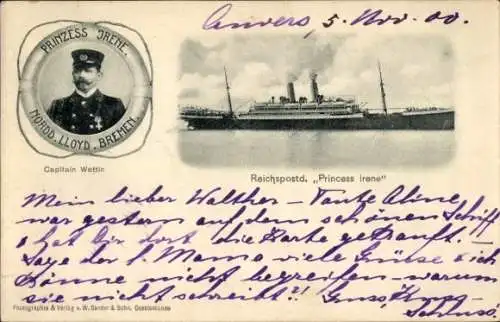 Anvers 5. Nov. 00.
PRINZESS IRENE.
NORDD. LLOYD. BREMEN.
Capitain Wettin
Reichspostd. „Princess Irene"
Mein lieber Walther – Tante Aline
war gestern auf dem schönen Schiff
& hat dir dort die Karte gekauft. –
Sage der l. Mama viele Grüsse & ich
könne nicht begreifen – warum
sie nicht schreibt?! Gruss
Photographie & Verlag v. W. Sander & Sohn, Geestemünde